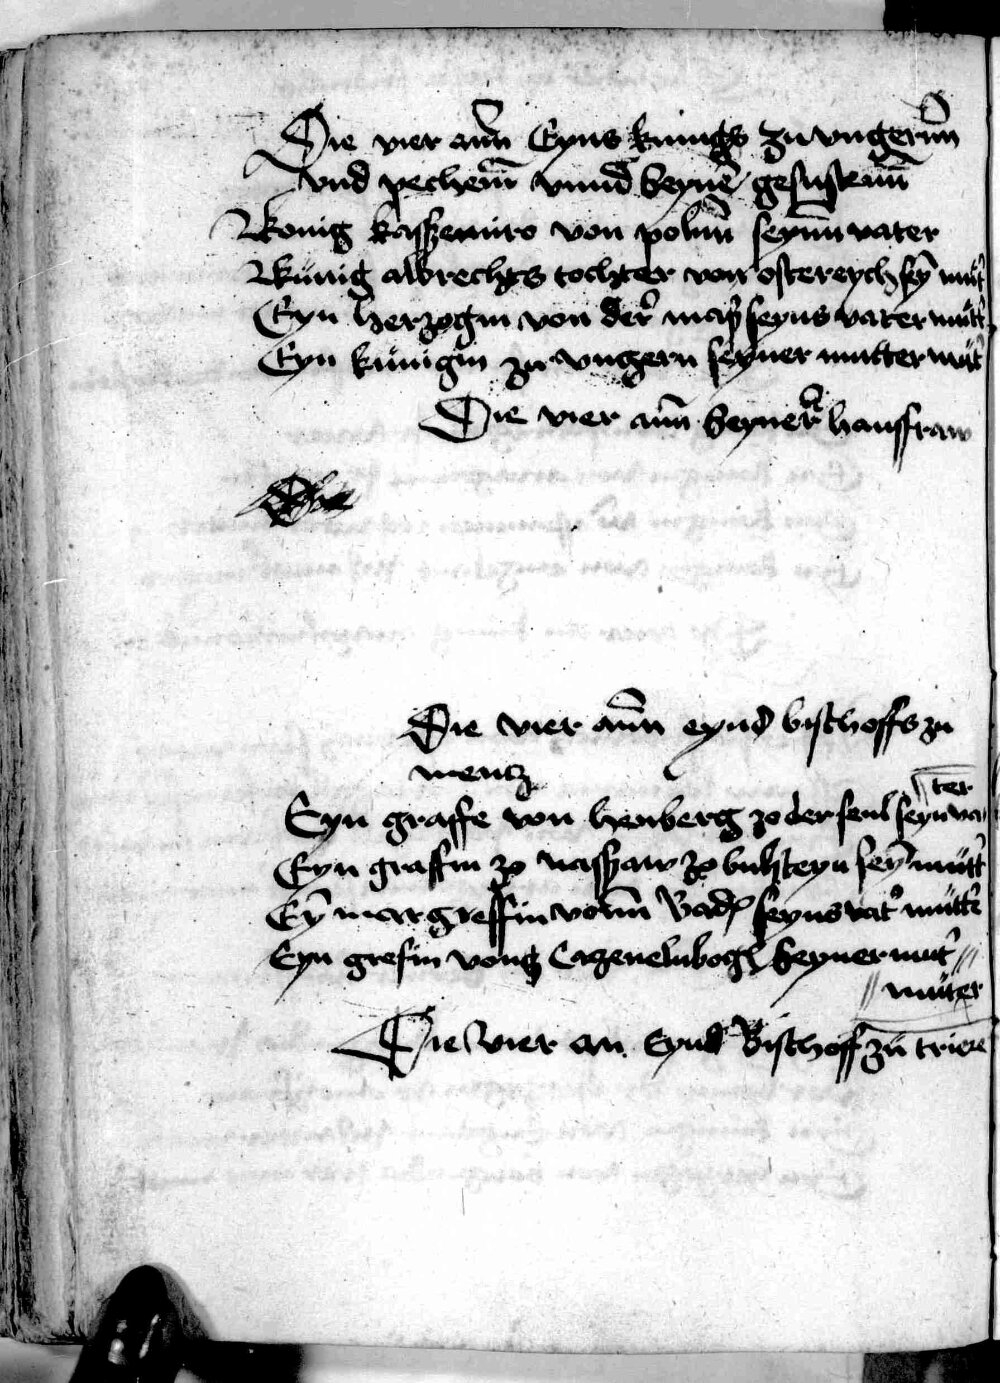 Die vier ann Eyns kunigs zu vngernn
vnd pechem vnnd seyner gesusternn
Konig kasszemiro von polnn seynn vater
Kunig albrechts tochter von ostereych sey mut'
Eyn herzogin von der mass seyns vater mutt'
Eyn kunigin zu vngern seyner mutter mut'
Die vier ann seyner hausfraw
Die
Die vier ann eynd bischoffs zu
mentz
Eyn graffe von henberg zo der seul seyn va//ter
Eyn graffin zo nasszaw zo bilsteyn sey mutt'
Ey margreffin vonn Bad seyns vat' mutt'
Eyn grefin vonn Cazenelnbogen seyner mut' //
// muter
Die vier an Eynd Bischoff zu triere